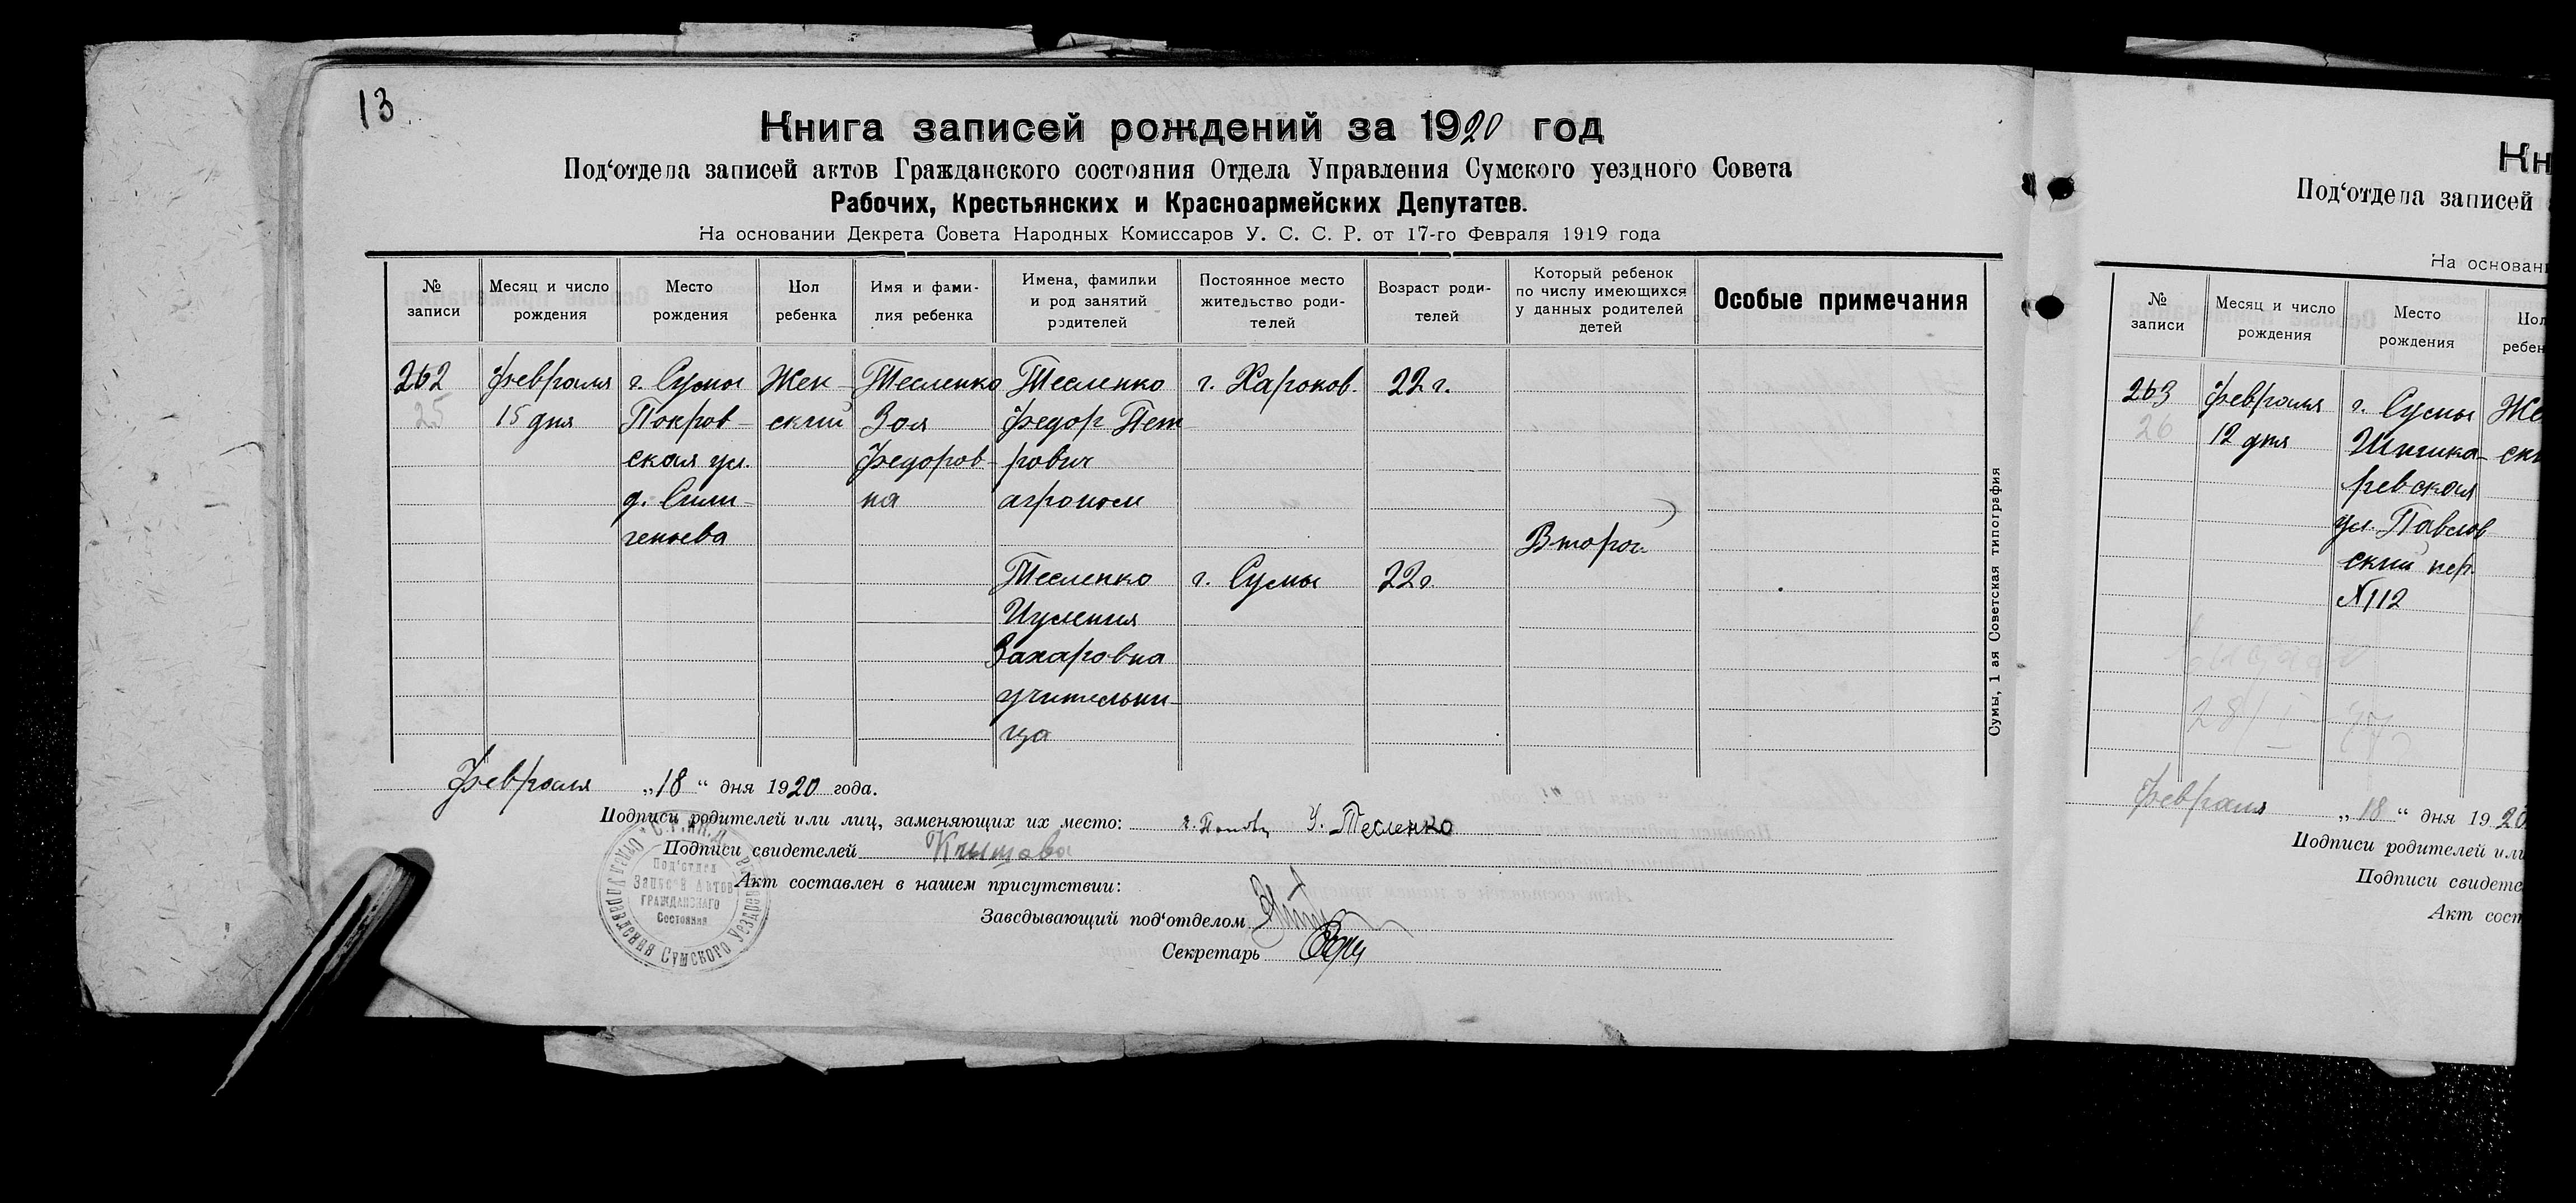 13
Книга записей рождений за 1920 год
Под‘отдела записей актов Гражданского состояния Отдела Управления Сумского уездного Совета
Рабочих, Крестьянских и Красноармейских Депутатов.
На основании Декрета Совета Народных Комиссаров У. С. С. Р. от 17-го Февраля 1919 года
№ записи
Месяц и число рождения
Место рождения
Пол ребенка
Имя и фами-
лия ребенка
Имена, фамилии
и род занятий
родителей
Постоянное место
жительство роди-
телей
Возраст роди-
телей
Который ребенок
по числу имеющихся
у данных родителей
детей
Особые примечания
262
25
Февраля
15 дня
г. Сумы
Покров-
ская ул.
д.
Жен-
ский
Тесленко
Зоя
Федоров-
на
Тесленко
Федор Пет-
рович
агроном
г. Харьков.
22 г.
Второй
Тесленко
Захаровна
учительни-
ца
г. Сумы
22 г.
Февраля „18“ дня 1920 года.
Подписи родителей или лиц, заменяющих их место: У. Тесленко
Подписи свидетелей
Акт составлен в нашем присутствии:
Заведывающий под‘отделом
Секретарь
Под‘отдел
Записей Актов
Гражданского
Состояния
Отдел Управления Сумского
Сумы, 1 ая Советская типография
Кн
Под‘отдела записей
На основан
№ записи
Месяц и число рождения
Место рождения
Пол
ребен
263
26
Февраля
12 дня
г. Сумы
ул. Павлов
ский пер.
№112
Же
ски
Февраля „18“ дня 1920
Подписи родителей или
Подписи свидете
Акт сост